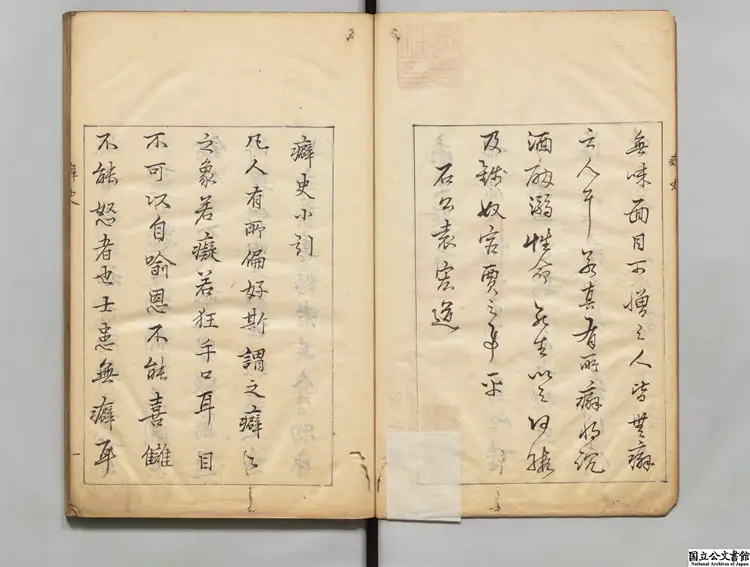 無味面目可憎之人皆無癖
之人耳若真有所癖將沉
酒酣溺性命死生以之何暇
及錢奴宦賈之事乎
石公袁宏道
癖史小引
凡人有所偏好斯謂之癖癖
之象若癡若狂手口耳目
不可以自喻恩不能喜讎
不能怒者也士患無癖耳
癖史
癖史
国立公文書館
National Archives of Japan